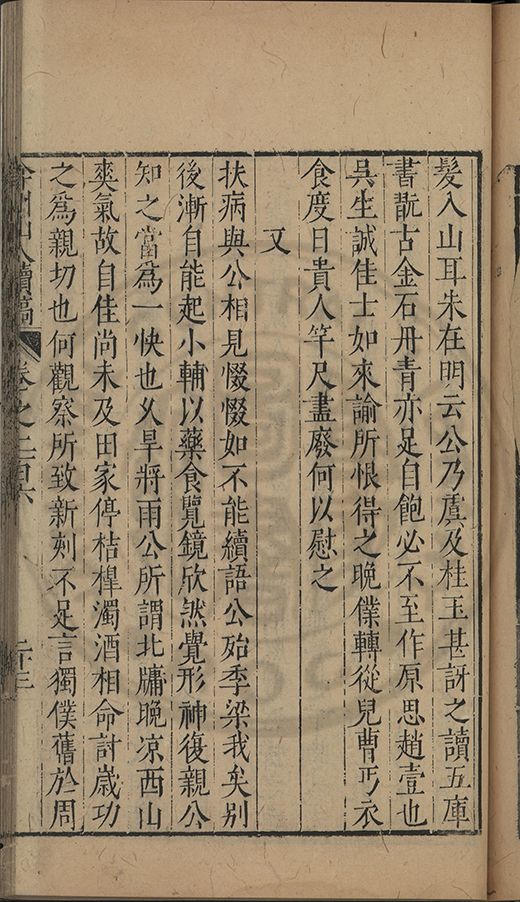 髮入山耳朱在明云公乃虞及桂玉甚訝之讀五庫
書翫古金石丹青亦足自飽必不至作原思趙壹也
吳生誠佳士如來諭所恨得之晚僕轉從兒曹丐衣
食度日貴人竿尺盡廢何以慰之
又
扶病與公相見惙惙如不能續語公殆季梁我矣別
後漸自能起小輔以藥食覽鏡欣然覺形神復親公
知之當爲一快也久旱將雨公所謂北牖晚凉西山
爽氣故自佳尚未及田家停桔橰濁酒相命討歳功
之爲親切也何觀察所致新刻不足言獨僕舊於周
弇州山人續稿 卷之二百六 二十三